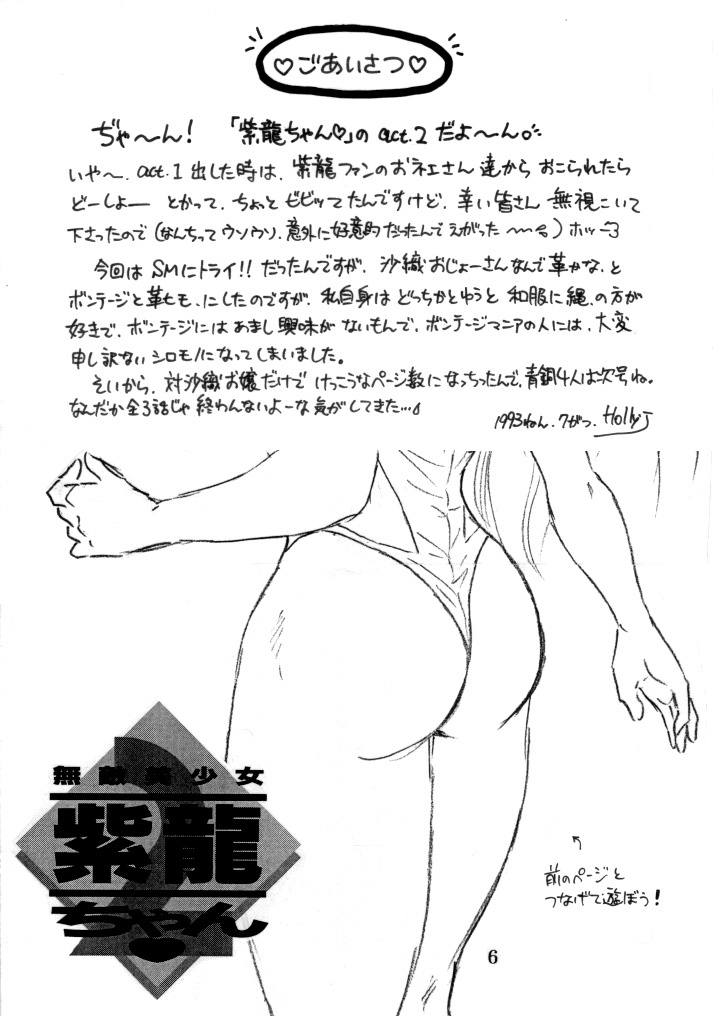 ♡ごあいさつ♡
ぢゃ〜ん！「紫龍ちゃん♡」の act.2 だよ〜ん。
いや〜、act.1 出した時は、紫龍ファンのおネエさん達から おこられたら
どーしよー とかって、ちょっと ビビッてたんですけど、幸い皆さん 無視こいて
下さったので(なんちって ウソウソ、意外に好意的だったんで えがった〜〜) ホッ
今回は SMにトライ!! だったんですが、沙織おじょーさんなんで 革かな、と
ボンテージと革ヒモ、にしたのですが、私自身は どっちかとゆうと 和服に縄、の方が
好きで、ボンテージには あまし興味が ないもんで、ボンテージマニアの人には、大変
申し訳ない シロモノになってしまいました。
そいから、対沙織お嬢だけで けっこうなページ数に なっちったんで、青銅4人は次号ね。
なんだか全3話じゃ 終わんないよーな気がしてきた…
1993ねん.7がつ. Holly J
無敵美少女
紫龍
ちゃん
2
前のページと
つなげて遊ぼう！
6